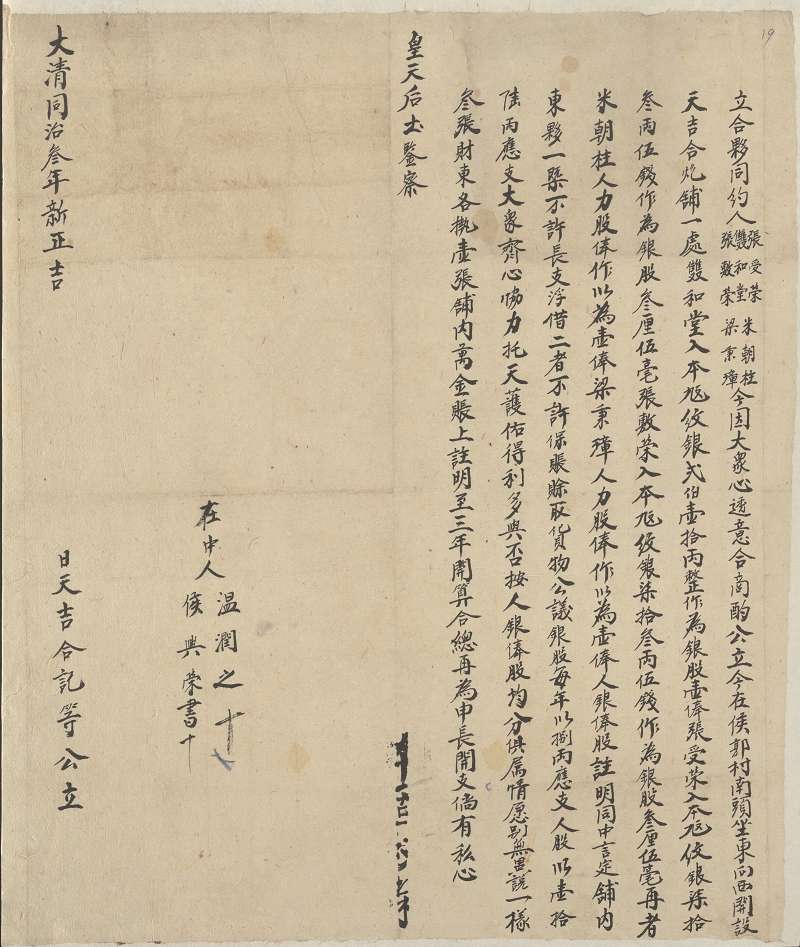 19
立合夥同約人張受榮雙和堂張敷榮米朝柱梁秉璋今因大衆心透意合商酌公立今在侯郭村南頭坐東向西開設
天吉合炮舖一處雙和堂入本足紋銀弍伯壹拾両整作為銀股壹俸張受榮入本足紋銀柒拾
叁両伍錢作為銀股叁厘伍毫張敷榮入本足紋銀柒拾叁両伍錢作為銀股叁厘伍毫再者
米朝柱人力股俸作以為壹俸梁秉璋人力股俸作以為壹俸人銀俸股註明同中言定舖內
東夥一槩不許長支浮借二者不許保賬賒取貨物公議銀股每年以捌両應支人股以壹拾
陆両應支大衆齊心協力托天護佑得利多與否按人銀俸股均分俱属情愿别無異說一樣
叁張財東各執壹張舖內萬金賬上註明至三年開算合總再為申長開支倘有私心
皇天后土鑒察
在中人
温潤之十
侯興榮書十
大清同治叁年新正吉
日天吉合記等公立